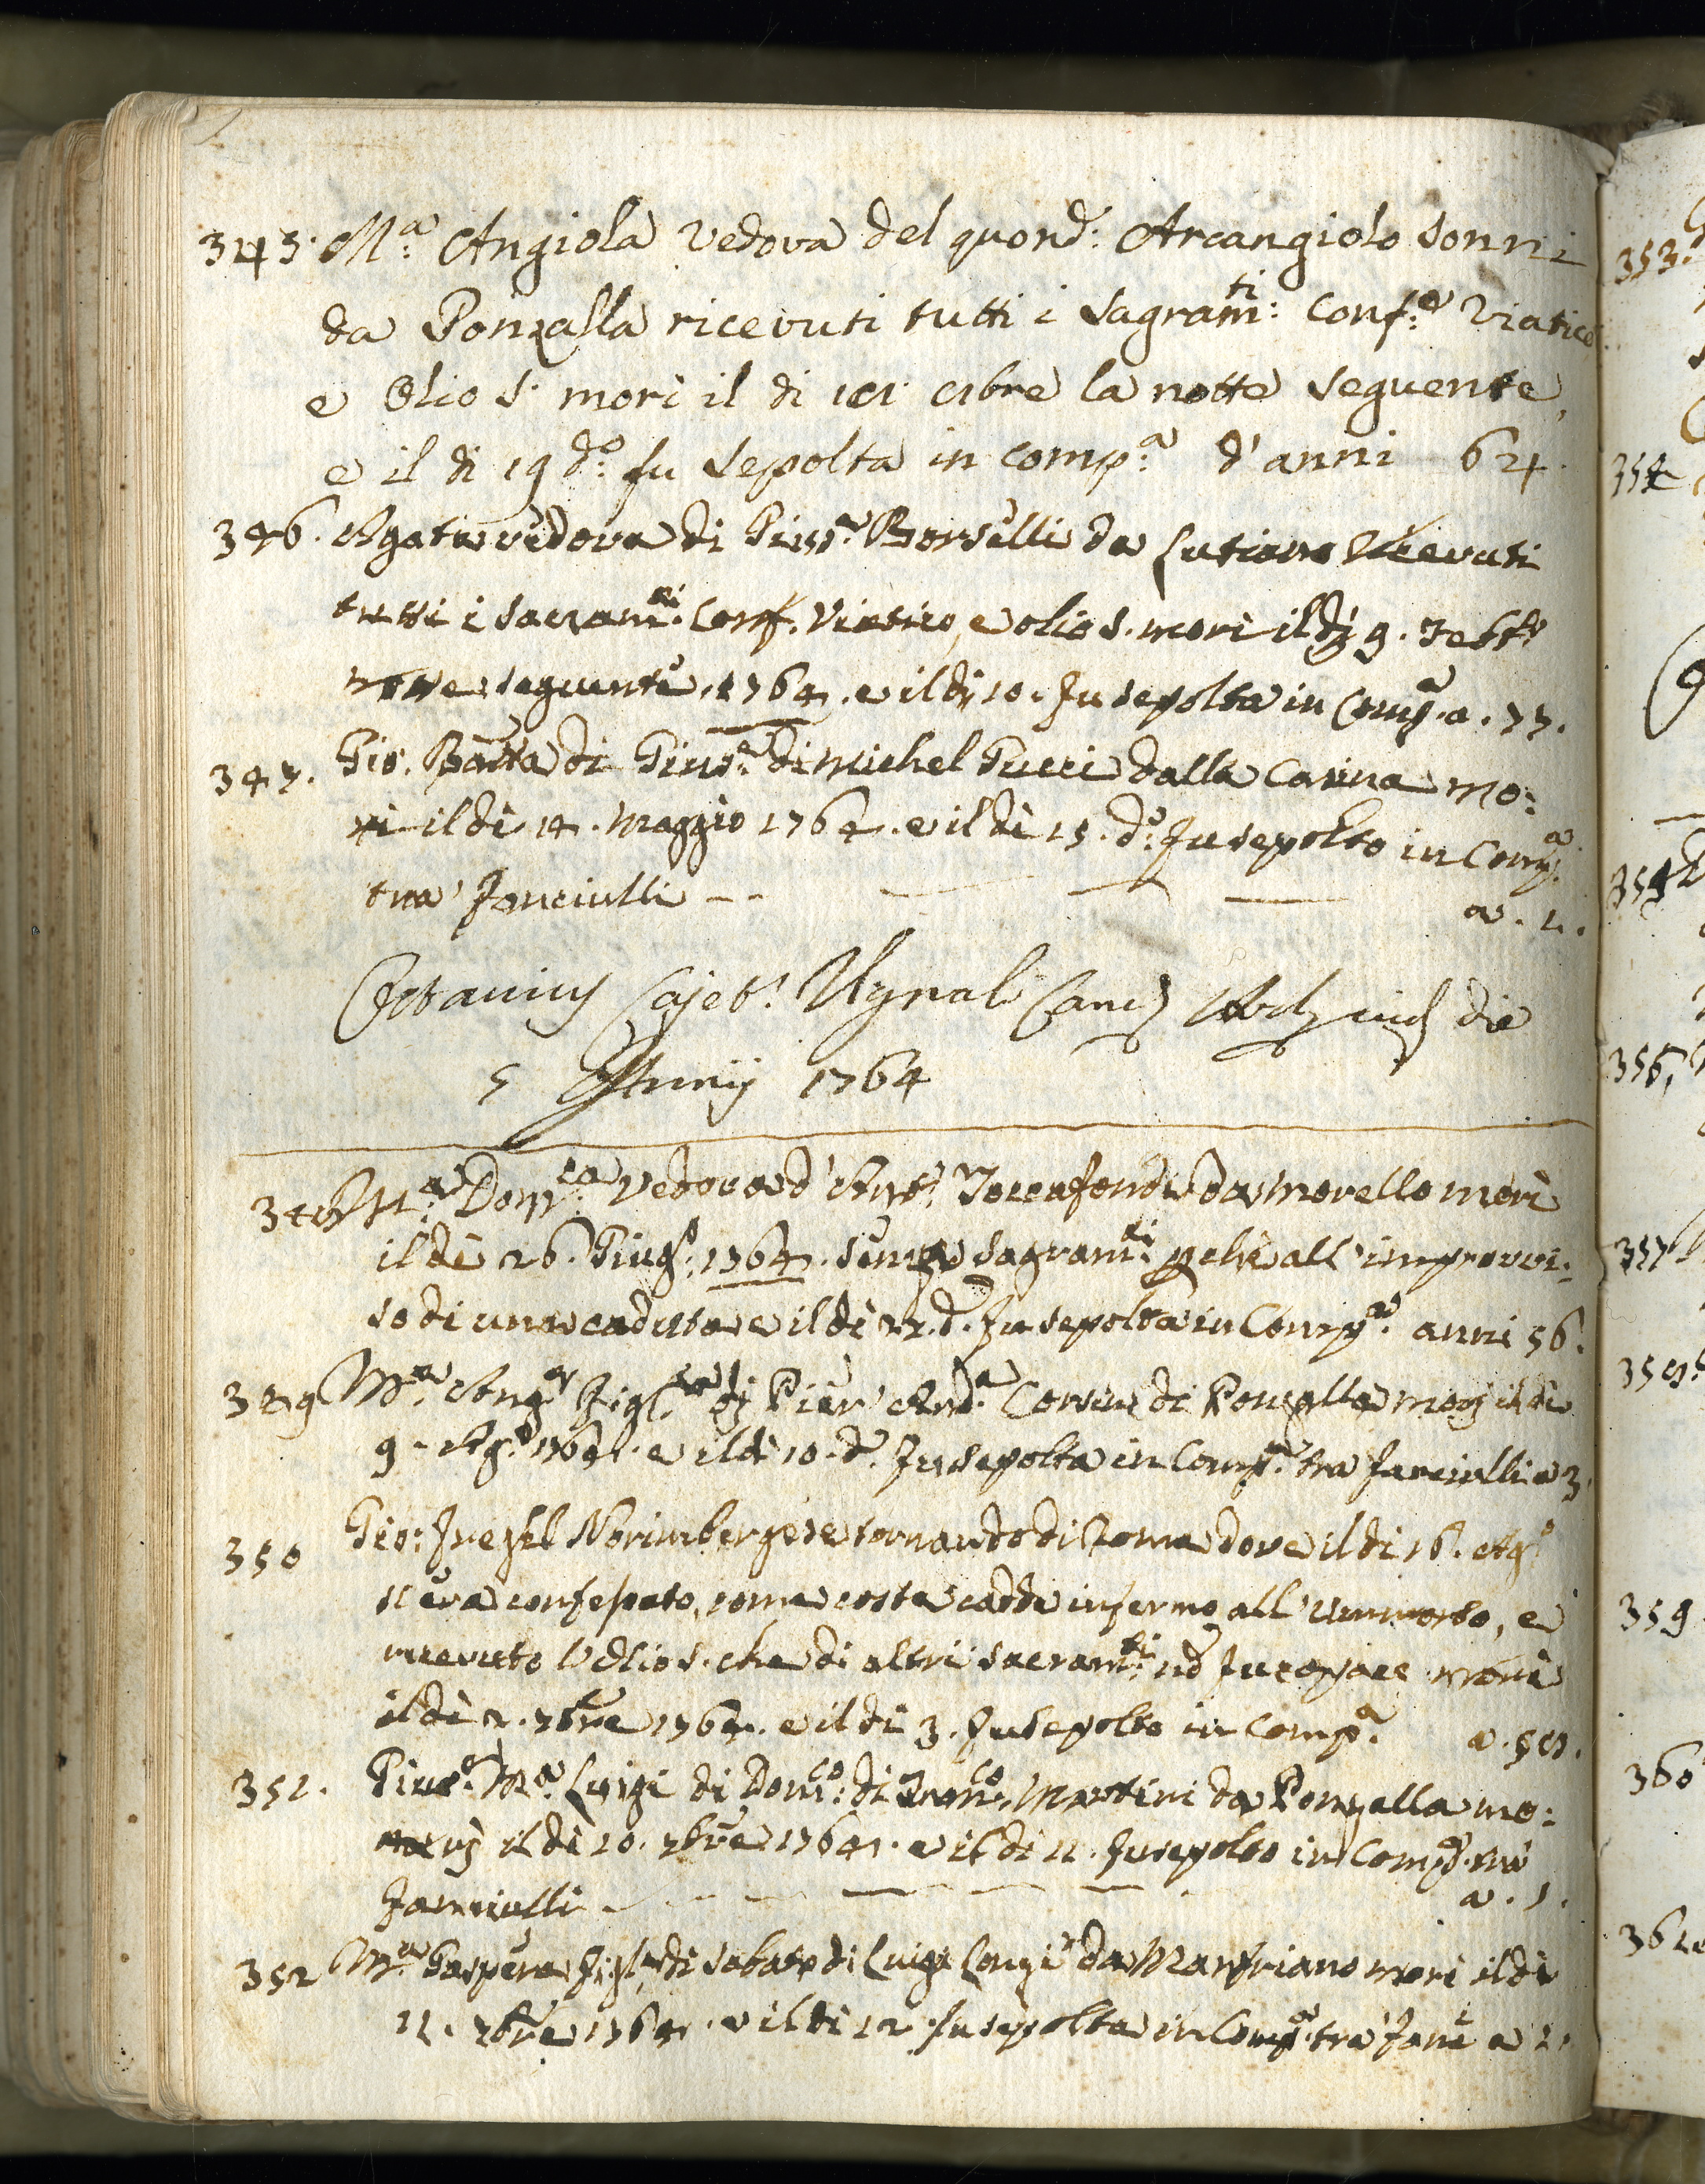 345. M.ª Angiola Vedova del quond: Arcangiolo Sonni
da Ponzalla ricevuti tutti i Sagram:ti Conf:e Viatico
e Olio S. morì il di 18 8bre la notte seguente,
e il di 19 d:º fu Sepolta in Comp:ª d'anni 64.
346. Agata vedova di Gius.e Borselli da Lutiano ricevuti
tutti i Sacram.ti Conf. Viatico, e olio S. morì il dì 9. Febb.º
notte seguente, 1764. e il dì 10. fu sepolta in Comp.ª a. 77.
347. Gio. Batta di Gius.e di Michel Pucci dalla Casina mo:
rì il dì 14. Maggio 1764. e il dì 15. d:º fu sepolto in Comp.ª
tra' fanciulli -- a. 1.
Octavius Cajet. Ugnali Canc Arch die
5 Junij 1764
348 M.ª Dom.ca Vedova d'Ant.º Toccafondi da Morello morì
il dì 26. Giug.º 1764. senza Sagram.ti pchè all'improvvi:
so di una caduta e il dì 27. d. fu sepolta in Comp.ª anni 56.
349 M.ª Ang.ª Figl.la di Pier And.ª Corsini di Ponzalla morì il dì
9. Ag.º 1764. e il dì 10. d.º fu sepolta in Comp.ª tra fanciulli a 3.
350 Gio: Norimbergese tornando di Roma dove il dì 16. Ag.º
si era confessato, come costa cadde infermo all' , e
ricevuto l'Olio S. che di altri Sacram.ti nō fu capace morì
il dì 2. 7bre 1764. e il dì 3. fu Sepolto in Comp.ª a. 58.
351. Gius.e M.ª Luigi di Dom.co: di Fran.co Martini da Ponzalla mo:
rì il dì 10. 7bre 1764. e il dì 11. fu sepolto in Comp.ª tra
fanciulli - a. 1.
352 M.ª Gaspera Figl.la di Sabato di Luigi Longi da Manfriano morì il dì
11. 7bre 1764. e il dì 12. fu sepolta in Comp.ª tra' fanc.i a 1.
353.
354
356,
357
358
359
360